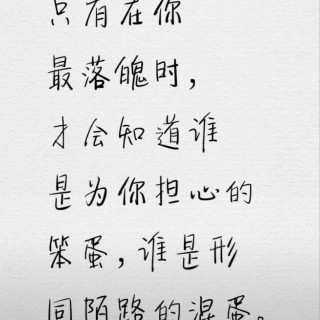 只有在你
最落魄时，
才会知道谁
是为你担心的
笨蛋，谁是形
同陌路的混蛋。